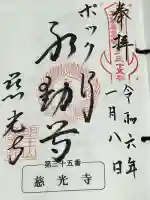 奉拝
令和六年
一月八日
ポックリ
不動尊
慈光寺
第三十五番
慈光寺